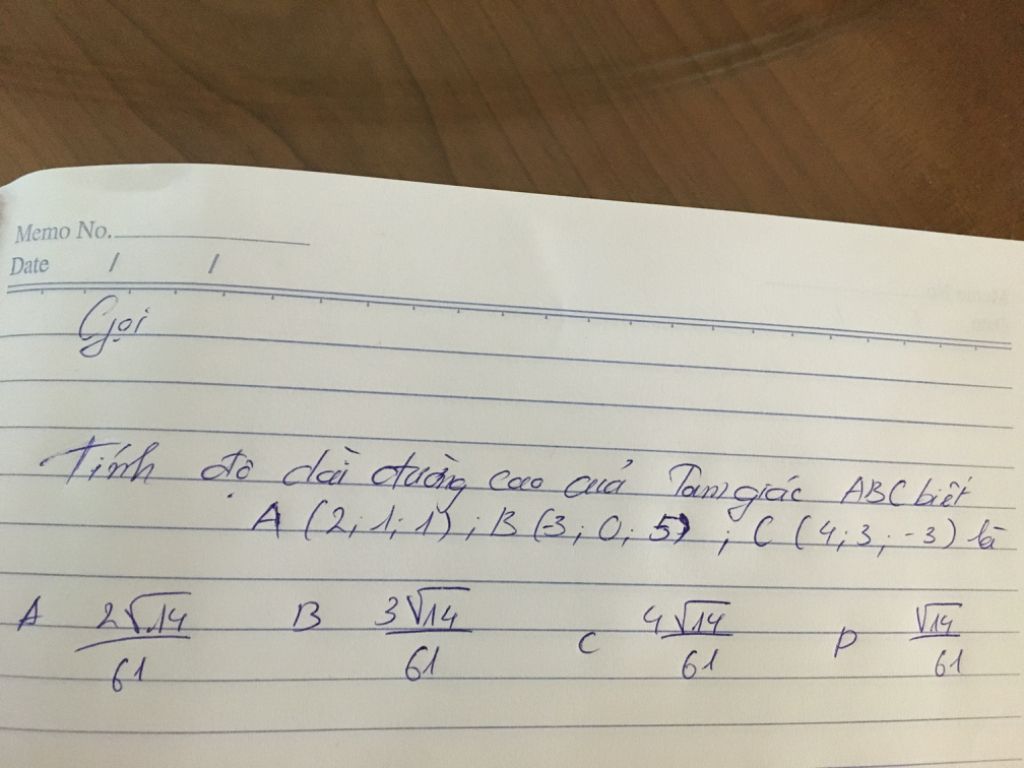 Memo No.
Date / /
Gọi
Tính độ dài đường cao của Tam giác ABC biết
A (2; 1; 1); B (-3; 0; 5); C (4; 3; -3) là
A 2√14/61 B 3√14/61 C 4√14/61 D √14/61